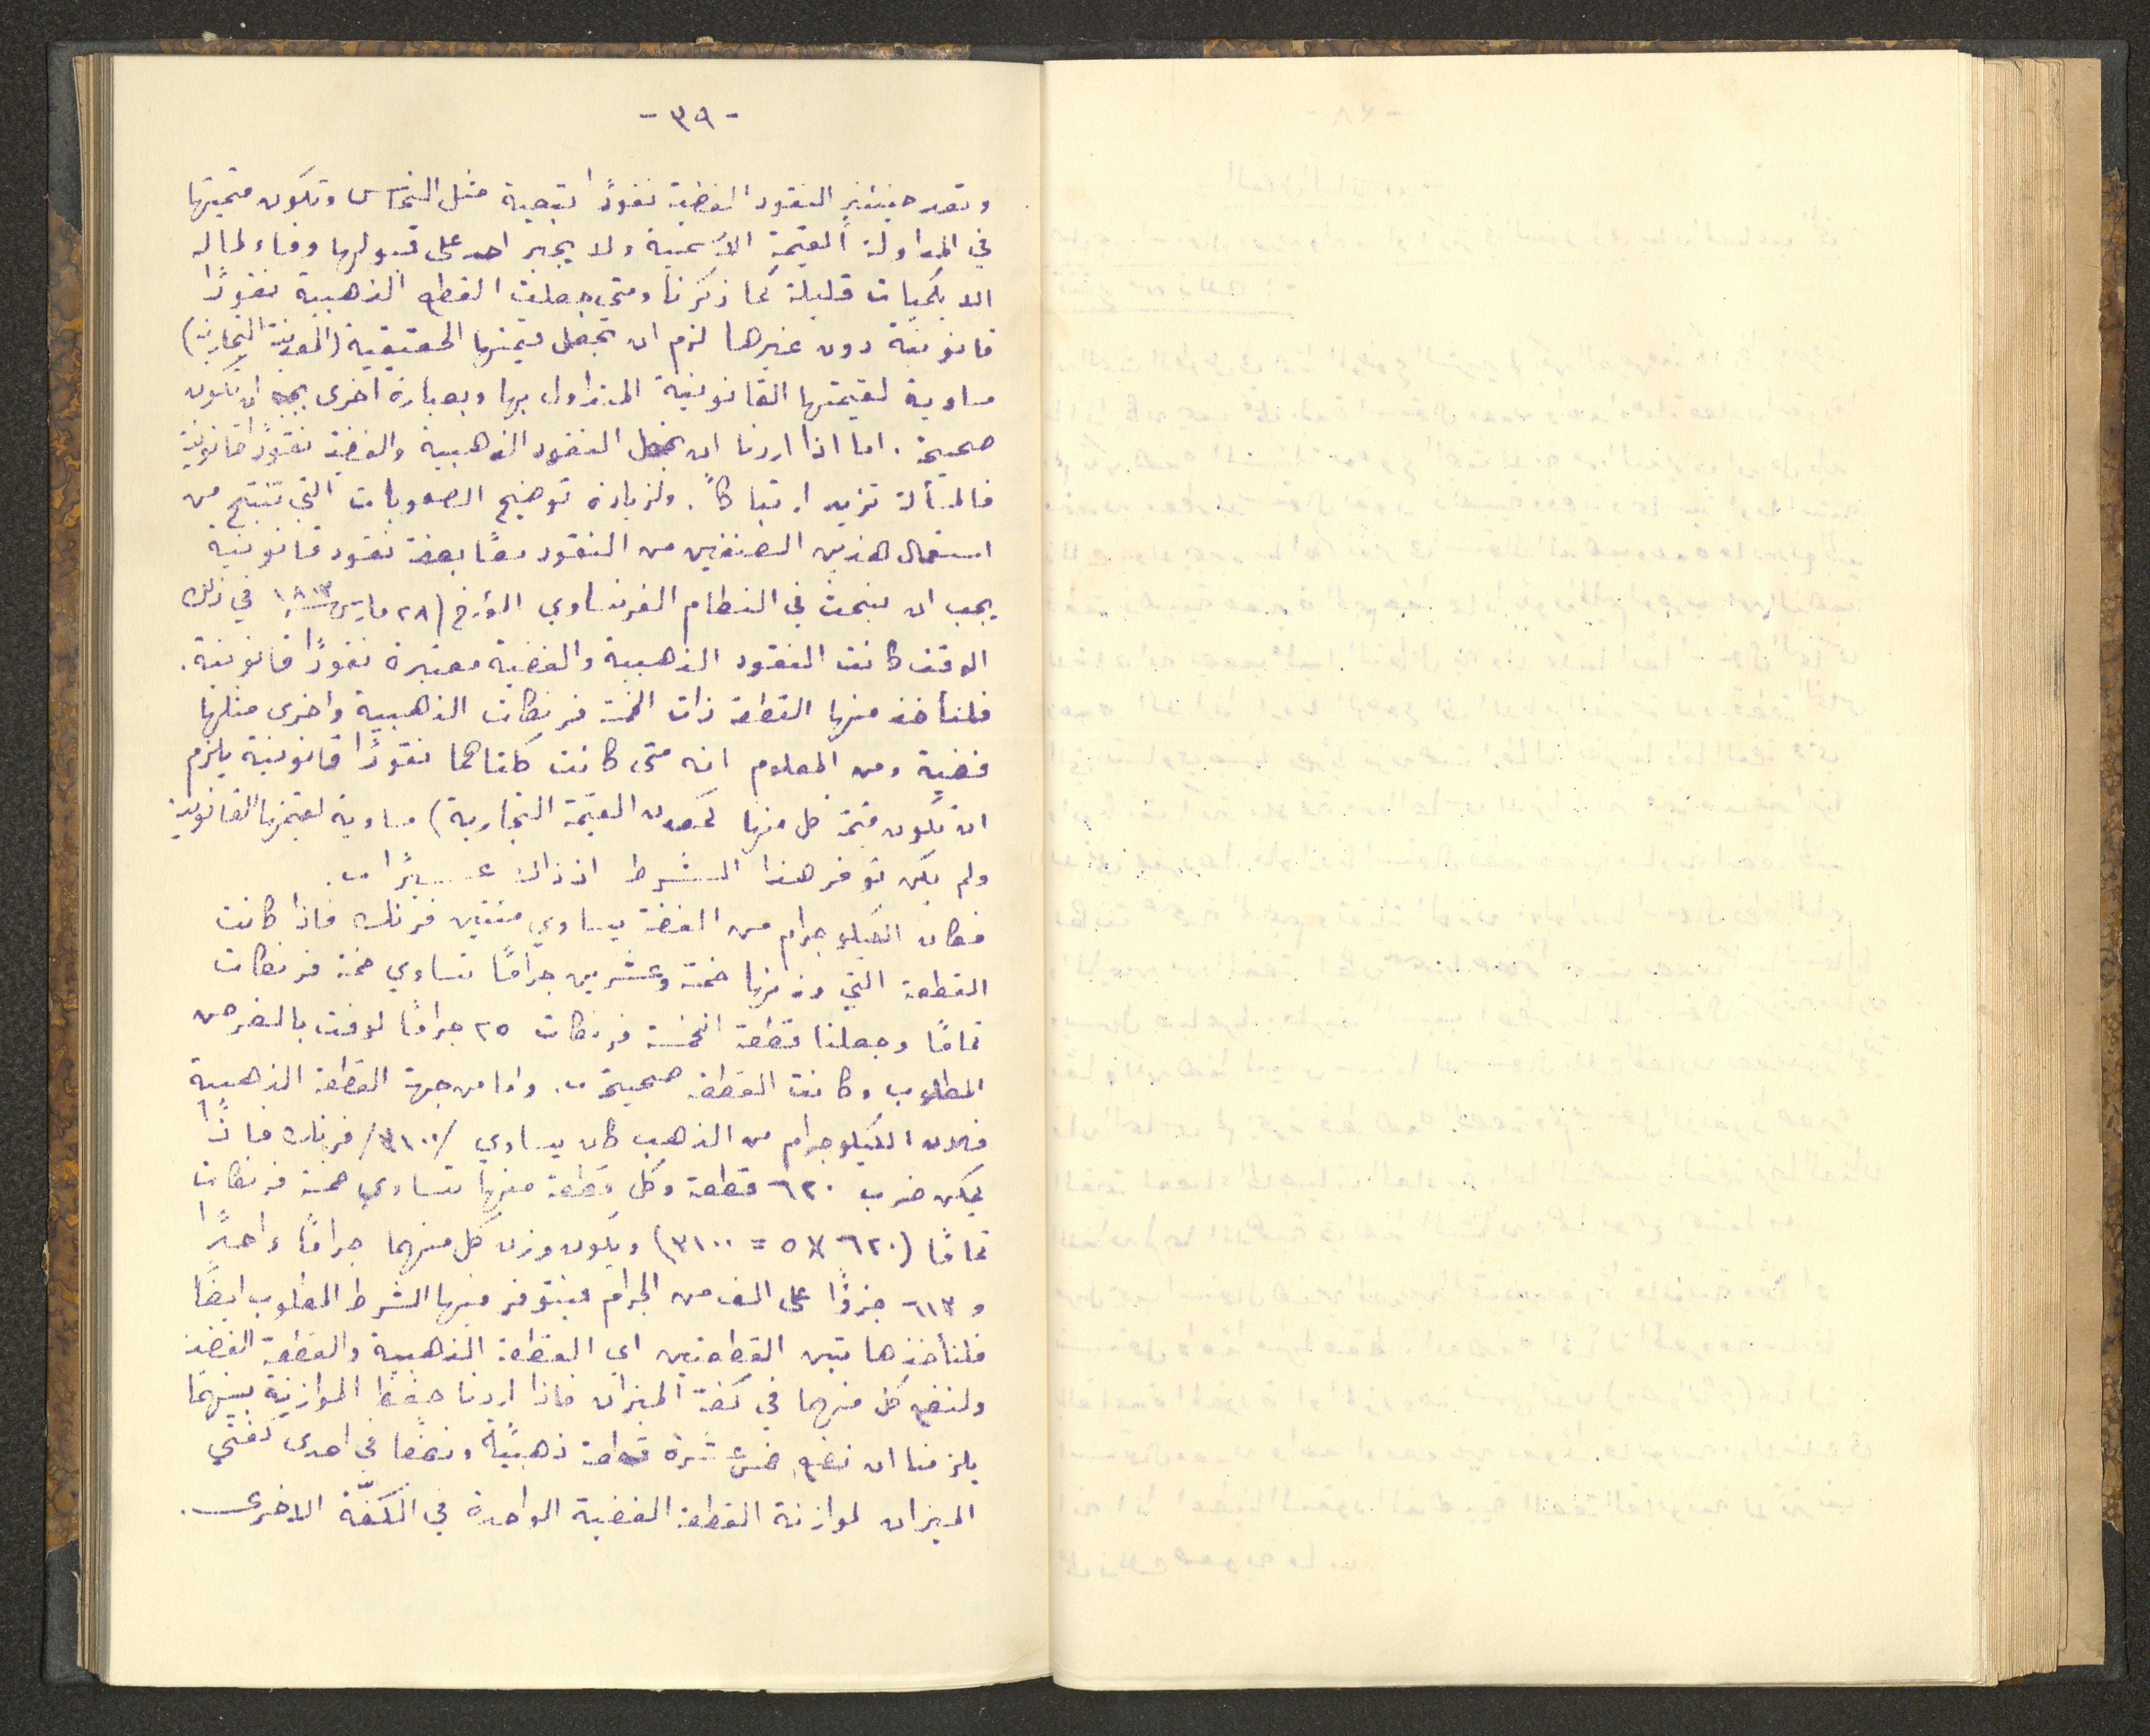 - ٣٩ -
وتعد حينئذٍ النقود الفضية نقودًا تبعية مثل النحاس وتكون قيمتها
في المداولة القيمة الاسمية ولا يجبر احد على قبولها وفاء لماله
الا بكميات قليلة كما ذكرنا ومتى جعلت القطع الذهبية نقودًا
قانونية دون غيرها لزم ان تجعل قيمتها الحقيقية (المعدنية التجارية)
مساوية لقيمتها القانونية المتداول بها وبعبارة اخرى يجب ان تكون
صحيحة . اما اذا اردنا ان نجعل النقود الذهبية والفضية نقودًا قانونية
فالمسألة تزيد ارتباكاً . ولزيادة توضيح الصعوبات التي تنتج من
استعمال هذين الصنفين من النقود معًا بصفة نقود قانونية
يجب ان نبحث في النظام الفرنساوي المؤرخ (٢٨ مارس ١٨٠٣ في ذلك
الوقت كانت النقود الذهبية والفضية معتبرة نقودًا قانونية .
فلنأخذ منها القطعة ذات الخمسة فرنكات الذهبية واخرى مثلها
فضية ومن المعلوم انه متى كانت كلتاهما نقودًا قانونية يلزم
ان تكون قيمة كل منها كمعدن القيمة التجارية) مساوية لقيمتها القانونية
ولم يكن توفر هذا الشرط اذ ذاك عسيرًا .
فكان الكيلوجرام من الفضة يساوي مئتين فرنك فاذا كانت
القطعة التي وزنها خمسة وعشرين جرامًا تساوي خمسة فرنكات
تمامًا وجعلنا قطعة الخمسة فرنكات ٢٥ جرامًا لوفت بالغرض
المطلوب وكانت القطعة صحيحة . واما من جهة القطعة الذهبية
فلان الكيلوجرام من الذهب كان يساوي /٣١٠٠/ فرنك فاذًا
يمكن ضرب ٦٢٠ قطعة وكل قطعة منها تساوي خمسة فرنكات
تمامًا (٦٢٠ × ٥ = ٣١٠٠) ويكون وزن كل منهما جرامًا واحدًا
و ٦١٣ جزءًا على الف من الجرام فيتوفر فيها الشرط المطلوب ايضًا
فلنأخذ هاتين القطعتين اي القطعة الذهبية والقطعة الفضية
ولنضع كل منهما في كفة الميزان فاذا اردنا حفظ الموازنة بينهما
يلزمنا ان نضع خمس عشرة قطعة ذهبية ونصفًا في احدى كفتي
الميزان لموازنة القطعة الفضية الواحدة في الكفّة الاخرى .